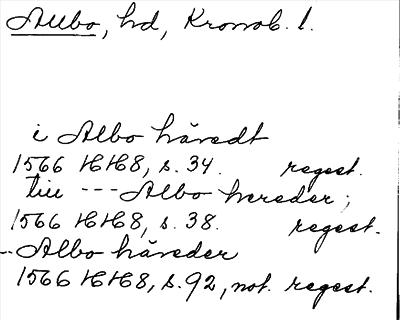 Allbo, hd, Kronob. l.
i Albo häredt
1566 HH8, s. 34. regest.
till --- Albo hereder;
1566 HH8, s. 38. regest.
-- Albo häreder
1566 HH8, s. 92, not. regest.